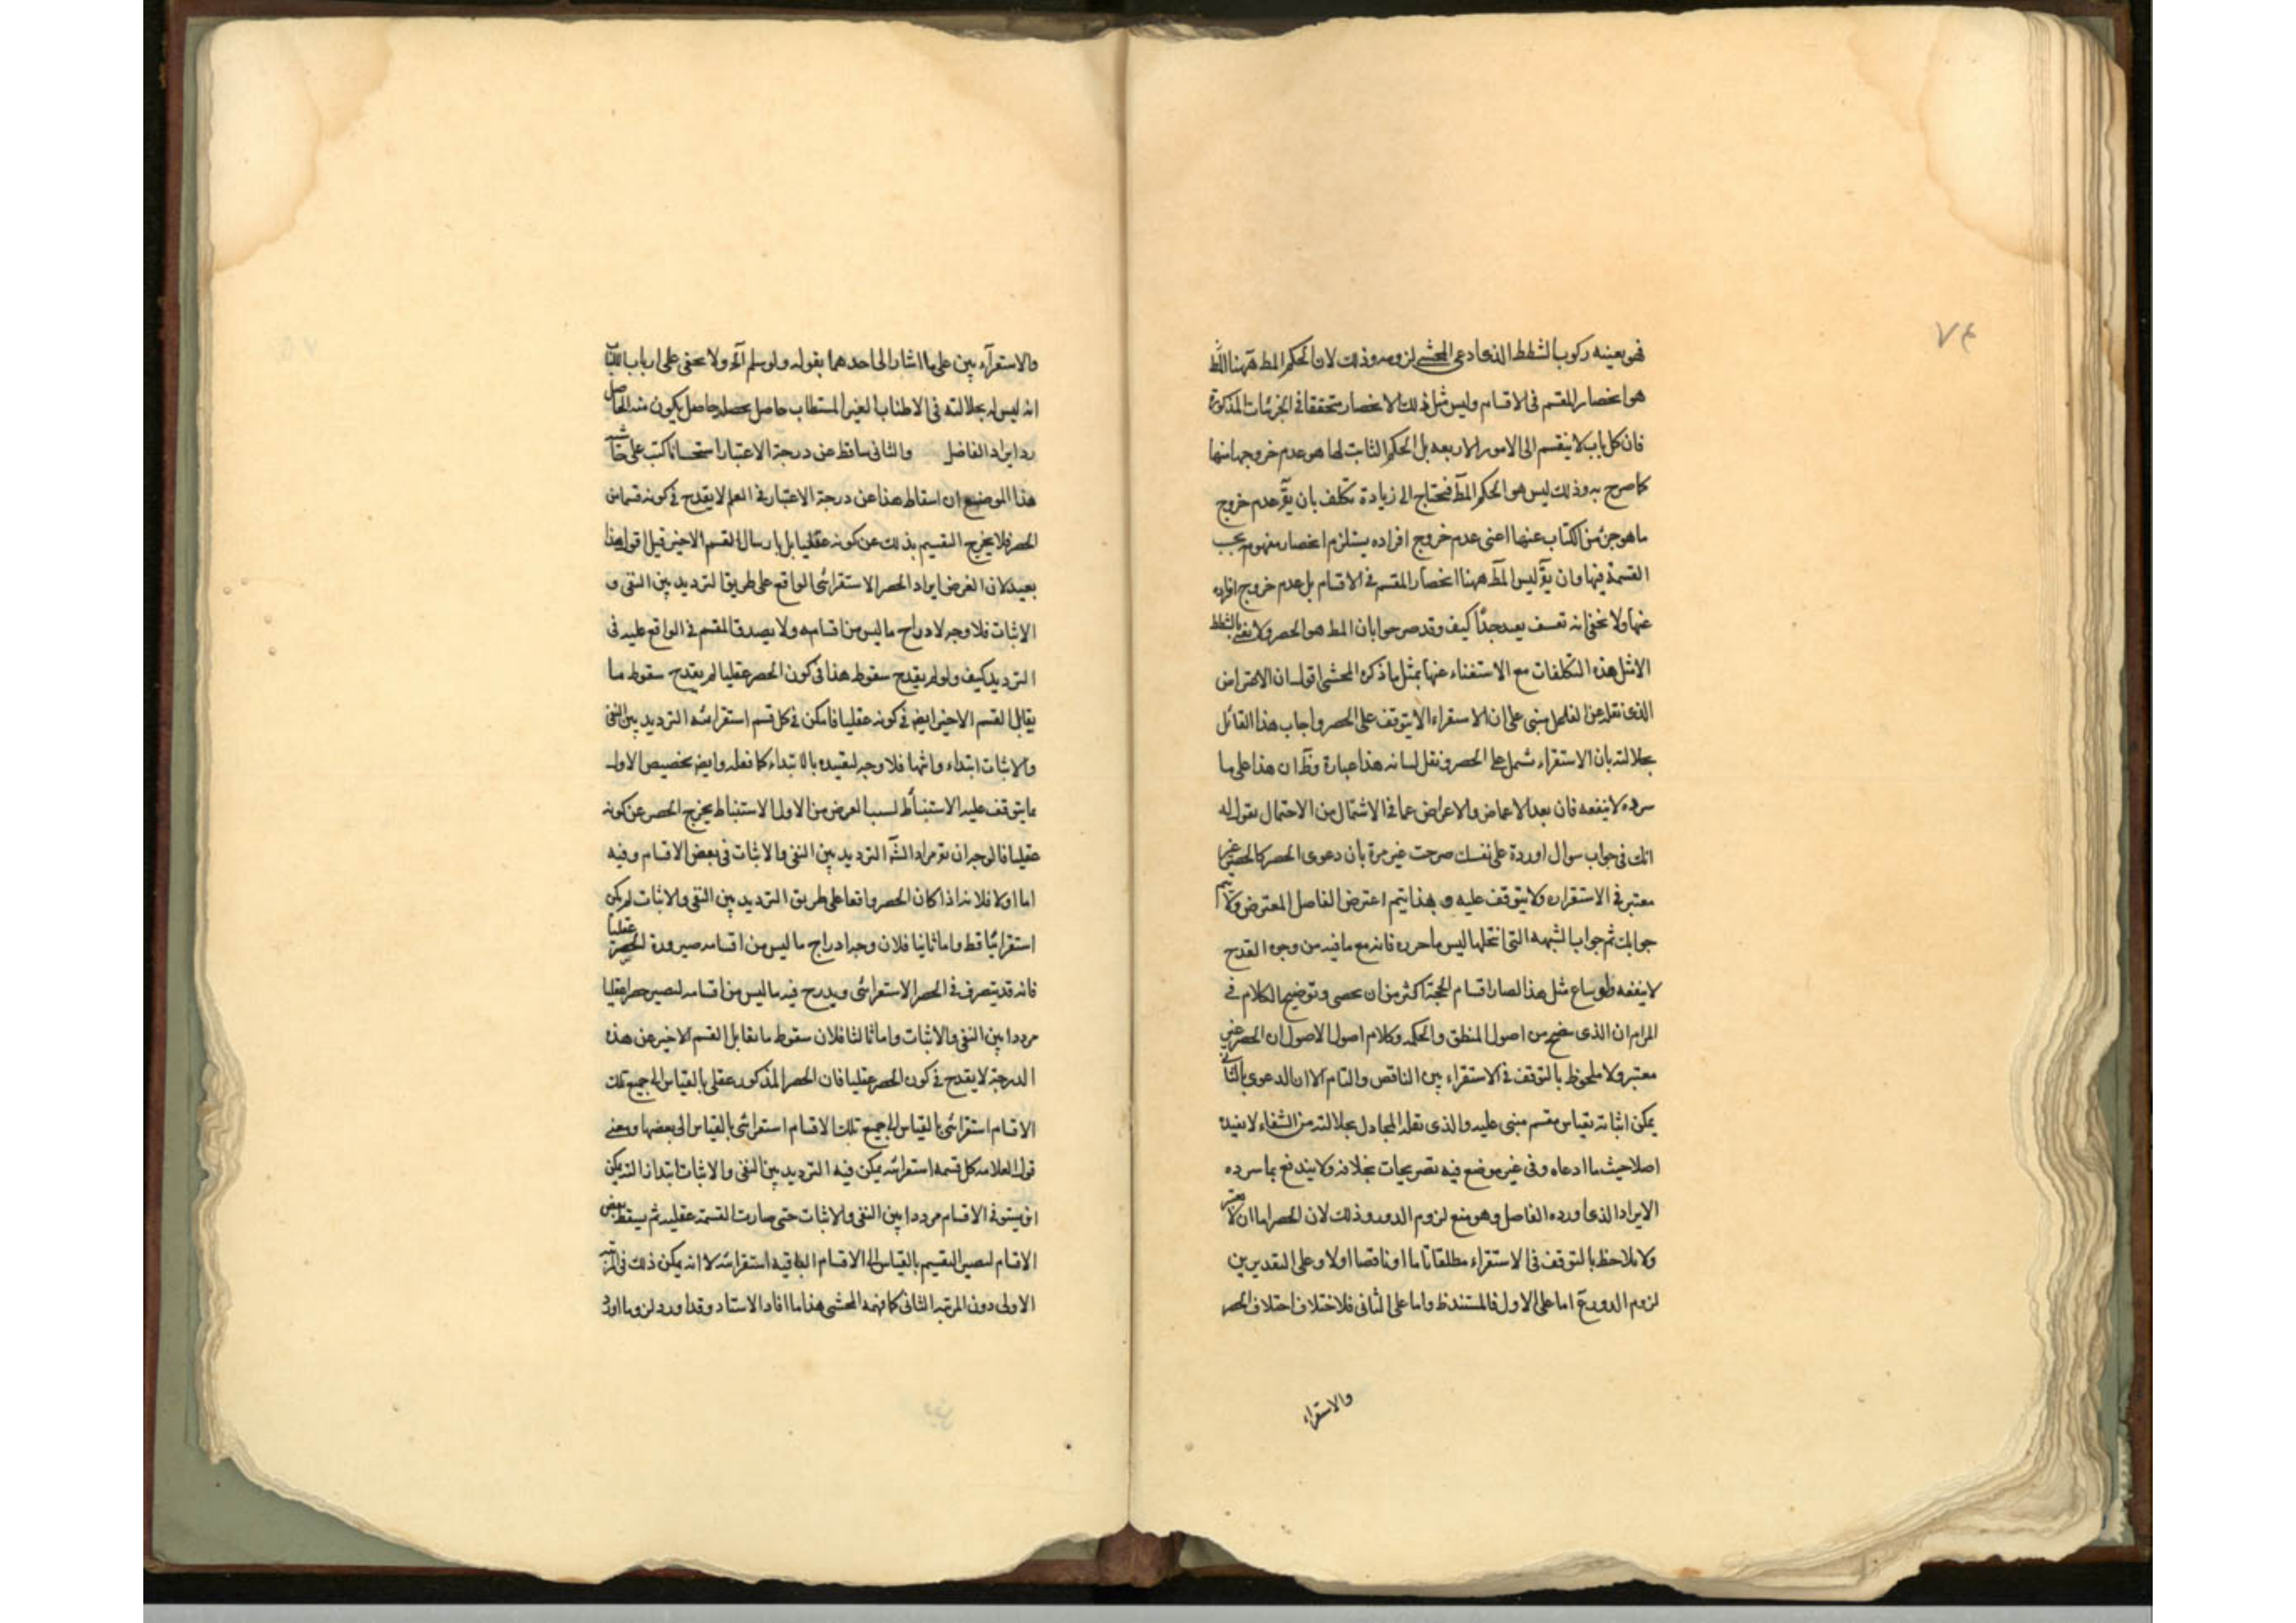 ٧٤
فهو بعينه ركوب الشطط الذى ادعى المحشى لزومه وذلك لان الحكم المط ههنا
هو انحصار المقسم فى الاقسام وليس مثل ذلك الانحصار متحققا فى الجزئيات المذكورة
فان كل باب لا ينقسم الى الامور الاربعه بل الحكم الثابت لها هو عدم خروجها منها
كما صرح به وذلك ليس هو الحكم المط فيحتاج الى زيادة تكلف بان يق عدم خروج
ما هو جزء من الكتاب عنها اعنى عدم خروج افراده يستلزم انحصار مفهوم يجب
القسمة فيها وان يق ليس المط ههنا انحصار المقسم فى الاقسام بل عدم خروج افراده
عنها ولا يخفى انه تعسف بعيد جدا كيف وقد صرحوا بان المط هو الحصر ولا نعنى بالشطط
الا مثل هذه التكلفات مع الاستغناء عنها بمثل ما ذكره المحشى اقول ان الاعتراض
الذى نقله عن الفاضل مبنى على ان الاستقراء لا يتوقف على الحصر واجاب هذا القائل
بجلالته بان الاستقراء يشمل على الحصر ونقل لسانه هذا عبارة وظ ان هذا على ما
سرده لا ينفعه فان بعد الاغماض والاعراض عما فى الاشتمال من الاحتمال نقول له
انك فى جواب سوال اوردة على نفسك صرحت غير مرة بان دعوى الحصر كالحصر غير
معتبر فى الاستقراء ولا يتوقف عليه و بهذا يتم اعترض الفاضل المعترض ولا يتم
جوابك ثم جواب الشبهه التى انتحلها ليس ما حرره فانه مع ما فيه من وجوه القدح
لا ينفعه ولو ساغ مثل هذا لصار اقسام الحجة اكثر من ان يحصى وتوضيح الكلام فى
المرام ان الذى سنح من اصول المنطق والحكمه وكلام اصول الاصول ان الحصر غير
معتبر ولا ملحوظ بالتوقف فى الاستقراء بين الناقص والتام الا ان الدعوى بالثانى
يمكن اثباته بقياس مقسم مبنى عليه والذى نقله المجادل بجلالته من الشفاء لا يفيده
اصلا حيث ما ادعاه وفى غير موضع فيه تصريحات بخلافه ولا يندفع بما سرده
الايراد الذى اورده الفاضل وهو منع لزوم الدور وذلك لان الحصر اما ان لا يعتبر
ولا يلاحظ بالتوقف فى الاستقراء مطلقا تاما او ناقصا اولا وعلى التقديرين
لزوم الدور ع اما على الاول فالمستند ظ واما على الثانى فلاختلاف اختلاف الحصر
والاستقراء
والاستقراء بين على ما اشار الى احدهما بقوله ولو سلم آه ولا يخفى على ارباب
انه ليس له بجلالته فى الاطناب الغير المستطاب حاصل يحصله حاصل يكون منه الحاصل
رد ايراد الفاضل والثانى ساقط عن درجة الاعتبار استحسانا كتب على حاشية
هذا الموضع ان اسقاط هذا عن درجة الاعتبار فى العلم لا يقدح فى كونه قسما من
الحصر فلا يخرج التقسيم بذلك عن كونه عقليا بل بارسال القسم الاخير قيل اقول هذا
بعيد لان الغرض ايراد الحصر الاستقرائى الواقع على طريق الترديد بين النفى و
الاثبات فلا وجه لادراج ما ليس من اقسامه ولا يصدق المقسم فى الواقع عليه فى
الترديد كيف ولو لم يقدح سقوط هذا فى كون الحصر عقليا لم يقدح سقوط ما
يقابل القسم الاخير ايضا فى كونه عقليا فامكن فى كل قسم استقرائيه الترديد بين النفى
والاثبات ابتداء وانتهاء فلا وجه لتقييده بالابتداء كما فعله وايضا تخصيص الاول
بما يتوقف عليه الاستنباط لسبب الغرض من الاول الاستنباط يخرج الحصر عن كونه
عقليا فالوجه ان يق مراد الش الترديد بين النفى والاثبات فى بعض الاقسام وفيه
اما اولا فلانه اذا كان الحصر واقعا على طريق الترديد بين النفى والاثبات لم يكن
استقرائيا قط واما ثانيا فلان وجه ادراج ما ليس من اقسامه صيرورة الحصر عقليا
فانه قد يتصرف فى الحصر الاستقرائى ويدرج فيه ما ليس من اقسامه ليصير حصرا عقليا
مرددا بين النفى والاثبات واما ثالثا فلان سقوط ما يقابل القسم الاخير عن هذه
الدرجة لا يقدح فى كون الحصر عقليا فان الحصر المذكور عقلى بالقياس الى جميع تلك
الاقسام استقرائى بالقياس الى جميع تلك الاقسام استقرائى بالقياس الى بعضها ومعنى
قول العلامه كل قسمه استقرائيه يمكن فيه الترديد بين النفى والاثبات ابتداء انه يمكن
ان يستوفى الاقسام مرددا بين النفى والاثبات حتى صارت القسمة عقليه ثم يسقط بعض
الاقسام ليصير التقسيم بالقياس الى الاقسام الباقيه استقرائيه لا انه يمكن ذلك فى المرتبه
الاولى دون المرتبه الثانى كما فهمه المحشى هذا ما افاد الاستاد وقد اورد لزوما اورد